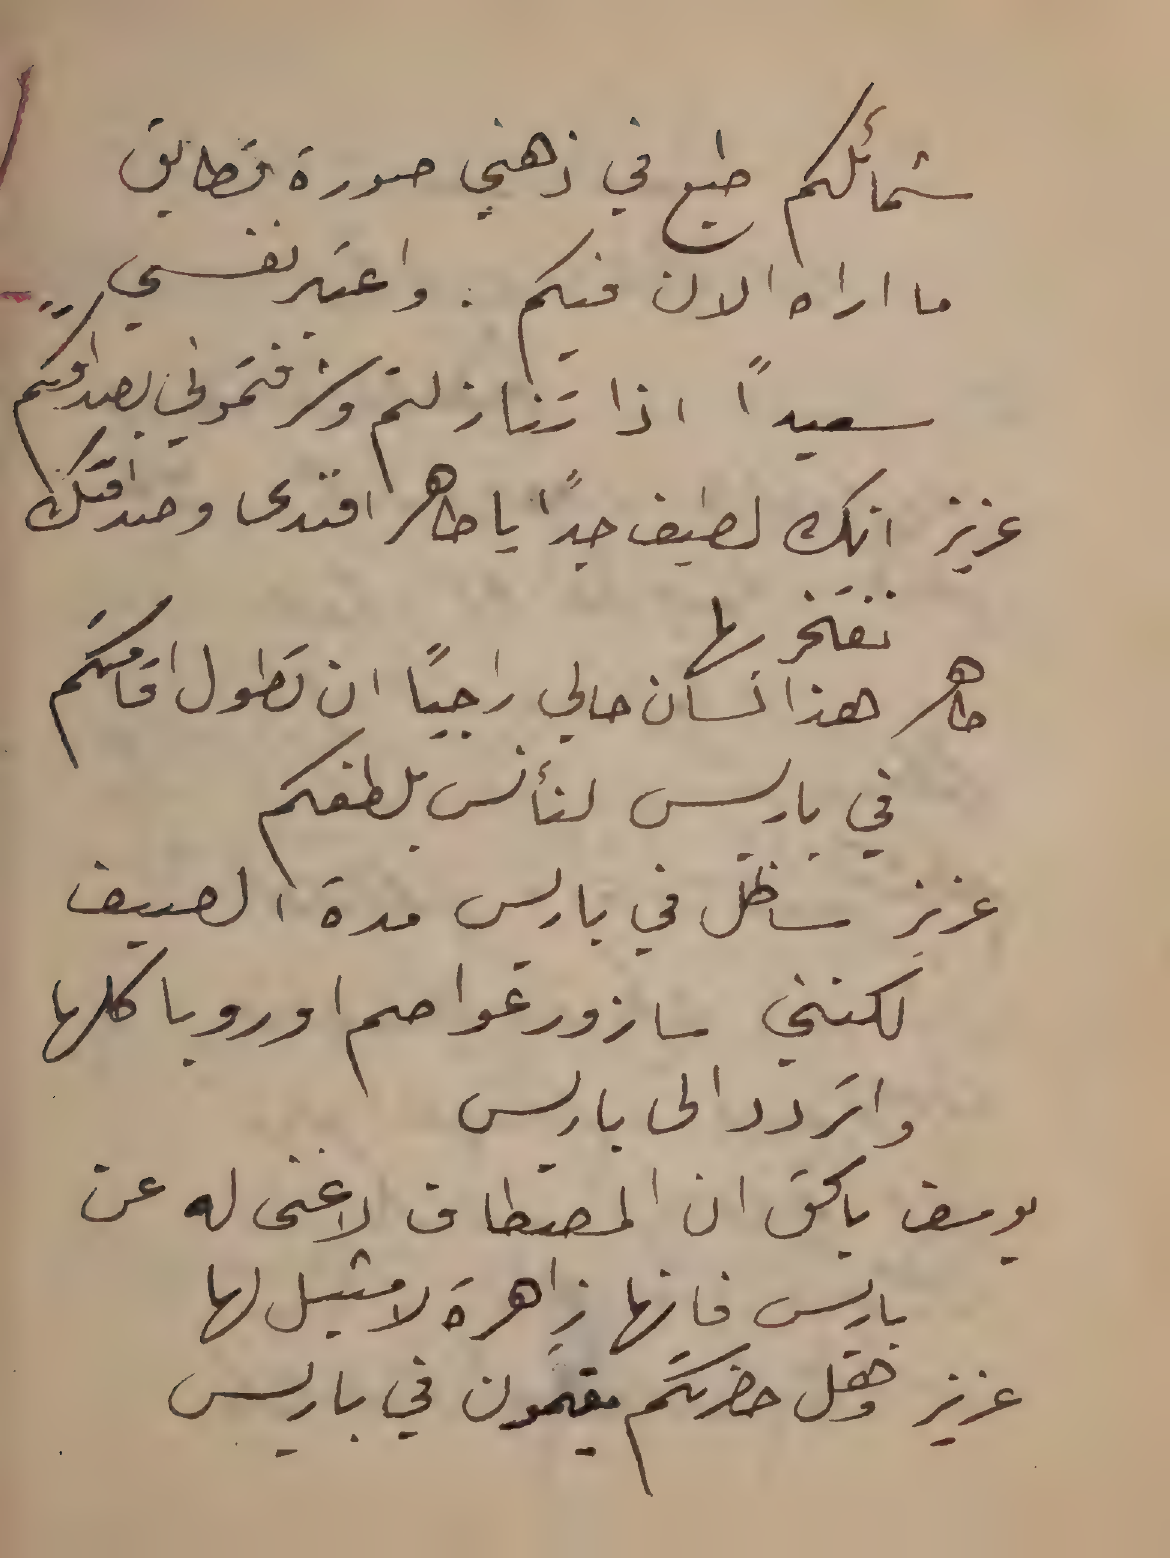 شمائلكم طبع في ذهني صورة تطابق
ما اراه الان فيكم . واعتبر نفسي
سعيداً اذا تنازلتم وشرفتموني بصداقتكم
عزيز انك لطيف جداً يا طاهر افندى وصداقتك
نفتخر بها
طاهر هذا لسان حالي راجياً ان تطول اقامتكم
في باريس لنأنس بلطفكم
عزيز ساظل في باريس مدة الصيف
لكنني سازور عواصم اوروبا كلها
واتردد الى باريس
يوسف بالحق ان المصطاف لا غنى له عن
باريس فانها زاهرة لا مثيل لها
عزيز وهل حضرتكم مقيمون في باريس